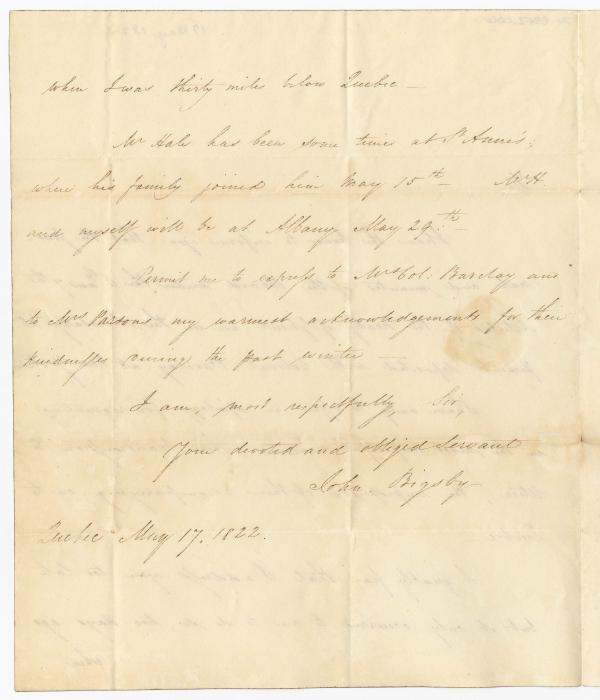 when I was thirty miles below Quebec —
Mr Hale has been some times at St Anne's;
where his family joined him May 15th — Mr H
and myself will be at Albany May 29th —
Permit me to express to Mrs Col: Barclay and
to Mrs Parsons my warmest acknowledgements for their
kindnesses during the past winter —
I am, most respectfully, Sir
Your devoted and obliged Servant
John Bigsby —
Quebec May 17. 1822.